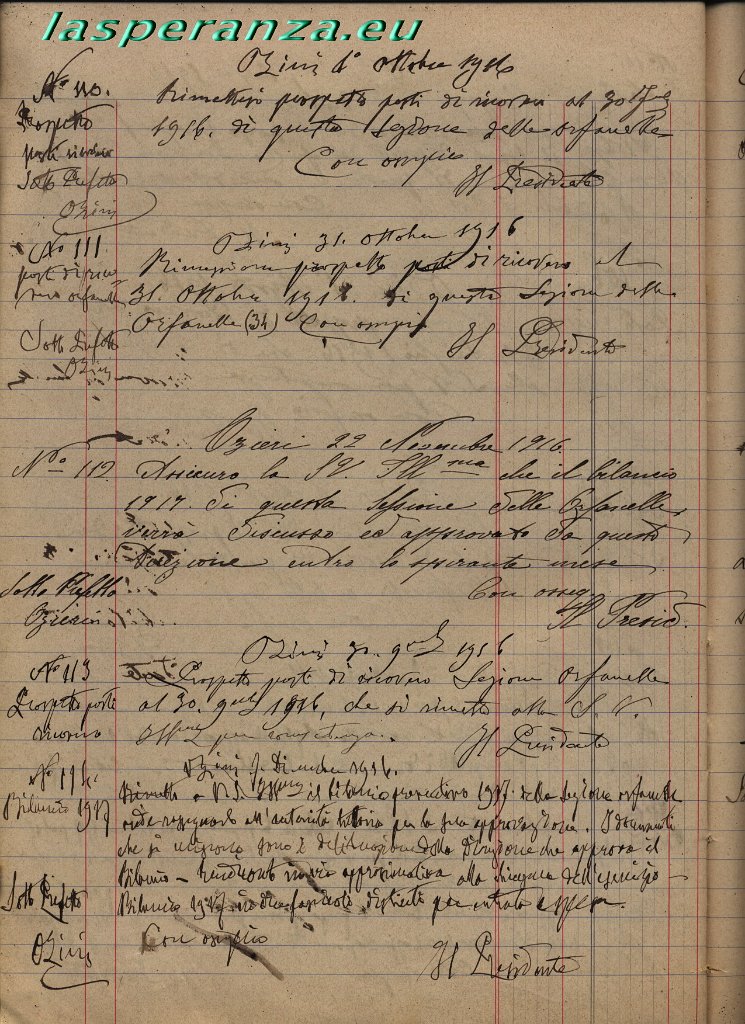 lasperanza.eu
Ozieri 1° Ottobre 1916
N° 110.
Prospetto
posti ricovero
Sotto Prefetto
Ozieri
Rimettesi prospetto posti di ricovero al 30
1916. di questa Sezione delle Orfanelle
Con ossequio
Il Presidente
Ozieri 31. Ottobre 1916
N° 111
posti di rico-
vero orfanelle
Sotto Prefetto
Ozieri
prospetto posti di ricovero al
31. Ottobre 1916. di questa Sezione delle
Orfanelle (34) Con ossequio
Il Presidente
Ozieri 22 Novembre 1916.
N° 112.
Sotto Prefetto
Ozieri
Assicuro la SV. Ill ma che il bilancio
1917. di questa Sessione delle Orfanelle,
verrà discusso ed approvato da questa
Direzione entro lo spirante mese
Con osseq.
Il Presid.
Ozieri 30. 9bre 1916
N° 113
Prospetto posti
ricovero
Prospetto posti di ricovero Sezione Orfanelle
al 30. 9bre 1916, che si rimette alla S. V.
Ill per competenza.
Il Presidente
Ozieri Dicembre 1916.
N° 114.
Bilancio 1917
Sotto Prefetto
Ozieri
Rimetto a V.S. Ill il bilancio preventivo 1917. della Sezione orfanelle
onde rassegnarlo all'autorità tutoria per la sua approvazione. I documenti
che si uniscono sono: deliberazione della Direzione che approva il
Bilancio - rendiconto approssimativa alla chiusura dell'esercizio -
Bilancio 1917. in due fascicoli distinti per entrata e spesa.
Con ossequio
Il Presidente